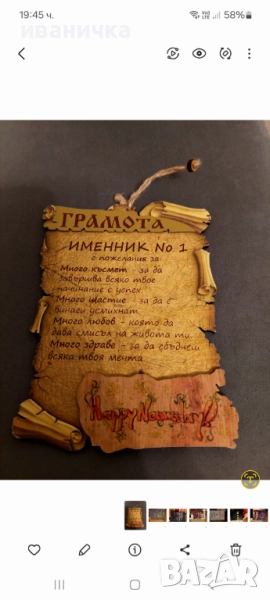 19:45 ч.
58%
иваничка
ГРАМОТА
ИМЕННИК No 1
с пожелания за
Много късмет - за да
завършва всяко твое
начинание с успех
Много щастие - за да с
винаги усмихнат
Много любов - която да
дава смисъл на живота ти
Много здраве - за да сбъднеш
всяка твоя мечта
Happy Nameday!
BAZAR